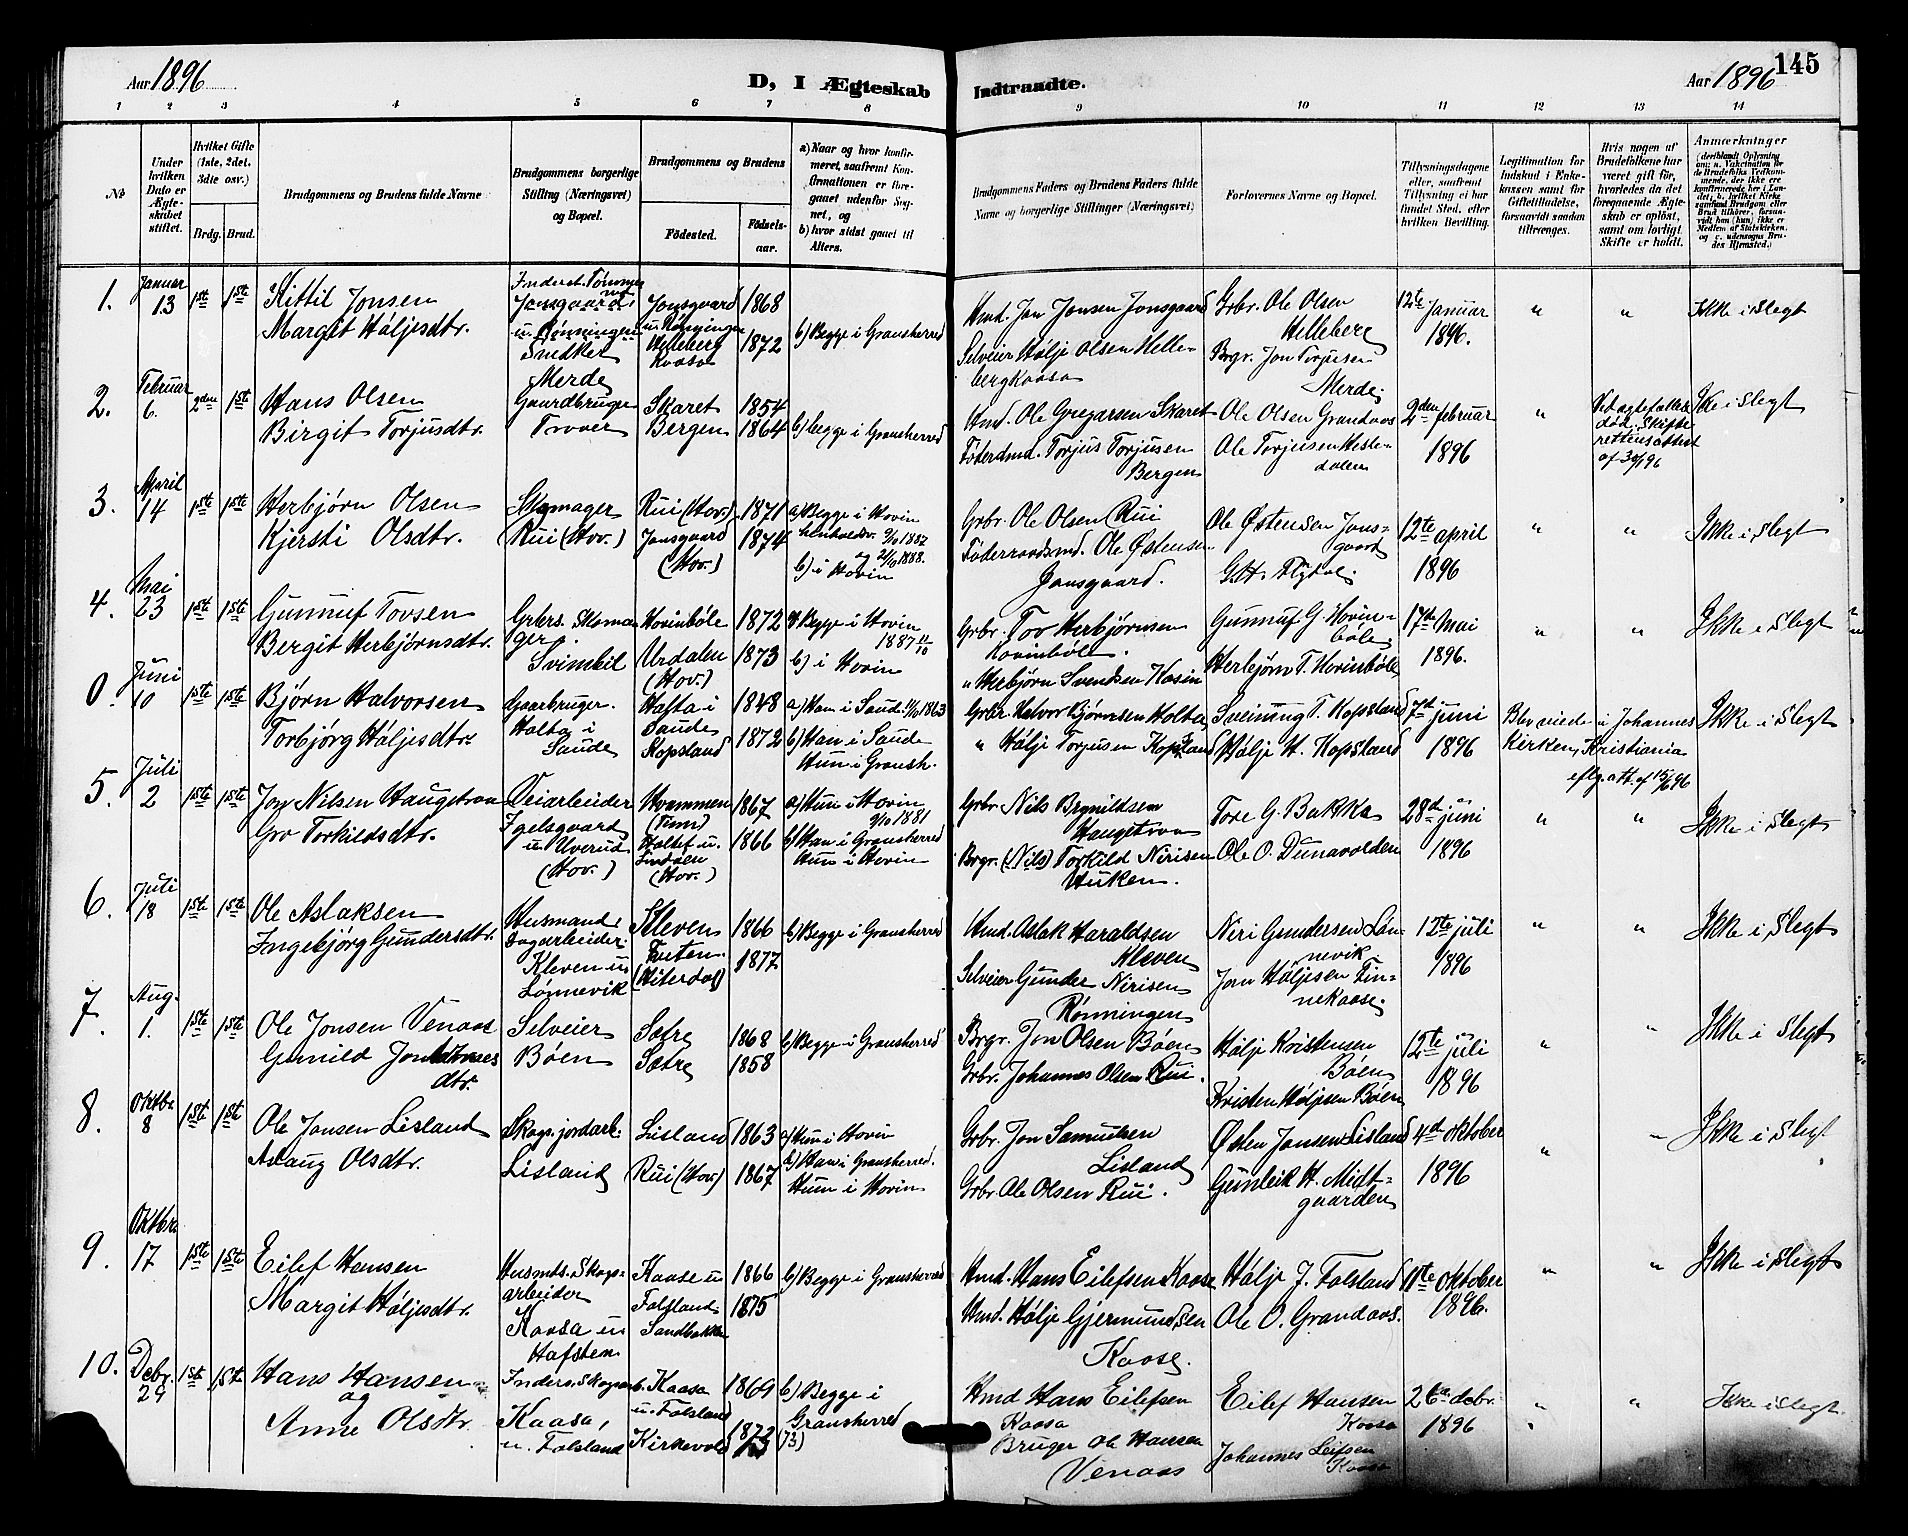 Aar 1896
D, I Ægteskab
Indtraadte.
Aar 1896
145
1 2 3 4 5 6 7 8 9 10 11 12 13 14
No
Under hvilken Dato er Ægteskabet stiftet.
Hvilket Gifte (1ste, 2det, 3die osv.)
Brdg. Brud.
Brudgommens og Brudens fulde Navne
Brudgommens borgerlige Stilling (Næringsvei) og Bopæl.
Brudgommens og Brudens
Fødested.
Fødselsaar.
a) Naar og hvor konfirmeret, saafremt Konfirmationen er foregaaet udenfor Sognet, og
b) hvor sidst gaaet til Alters.
Brudgommens Faders og Brudens Faders fulde Navne og borgerlige Stillinger (Næringsvei)
Forlovernes Navne og Bopæl.
Tillysningsdagene eller, saafremt Tillysning ei har fundet Sted, efter hvilken Bevilling.
Legitimation for Indskud i Enkekassen samt for Giftetilladelse, forsaavidt saadan tiltrænges.
Hvis nogen af Brudefolkene har været gift før, hvorledes da det foregaaende Ægteskab er opløst, samt om lovligt Skifte er holdt.
Anmærkninger
1. Januar 13 1ste 1ste
Kittil Jonsen
Margit Høljesdtr.
Jonsgaard
Snedker
Jonsgaard 1868
u. Rønningen
Helleberg Kaasa 1872
b) Begge i Gransherred
Hmd. Jon Jonsen Jonsgaard
Selveier Hølje Olsen Hellebergkaasa
Grbr. Ole Olsen Helleberg
Brgr. Jon Torjusen Merde
12te Januar 1896.
" " Ikke i Slegt
2. Februar 6. 2den 1ste
Hans Olsen
Birgit Torjusdtr.
Merde
Gaardbruger
Trover
Skaret 1854
Bergen 1864
b) begge i Gransherred
Hmd. Ole Gregarsen Skaret
Føderdmd. Torjus Torjusen Bergen
Ole Olsen Grandaas
Ole Torjusen Hesledalen
2den februar 1896
"
Ved egtefælles død. Skifterettens attest af
Ikke i Slegt
3. April 14 1ste 1ste
Herbjørn Olsen
Kjersti Olsdtr.
Skomager
Rui (Hov.)
Rui (Hov.) 1871
Jonsgaard (Hov.) 1874
a) Begge i Hovin
henholdsv. 9/10 1887 og 21/10 1888.
b) i Hovin
Grbr. Ole Olsen Rui
Føderraadsmd. Ole Østensen Jonsgaard.
Ole Østensen Jonsgaard
12te april 1896
" " Ikke i Slegt
4. Mai 23 1ste 1ste
Gunnuf Tovsen
Bergit Herbjørnsdtr.
Grbrs. Skomager.
Svimbil
Hovinbøle 1872
Urdalen (Hov.) 1873
a) Begge i Hovin
1887
b) i Hovin
Grbr. Tov Herbjørnsen Hovinbøle.
" Herbjørn Svendsen Kasin
Gunnuf G. Hovinbøle
Herbjørn T. Hovinbøle
17de Mai 1896.
" " Ikke i Slegt
0. Juni 10 1ste 1ste
Bjørn Halvorsen
Torbjørg Høljesdtr.
Gaarbruger.
Holta i Saude
Holta i Saude 1848
Kopsland 1872
a) Han i Saude 1863
b) Han i Saude
Hun i Gransh.
Grbr. Halvor Bjørnsen Holta
" Hølje Torjusen Kopsland
Sveinung T. Kopsland
Hølje H. Kopsland
7de juni 1896
Blev viede i Johannes Kirken, Kristiania eflg. att. af 15/6 96
Ikke i Slegt
5. Juli 2 1ste 1ste
Jon Nilsen Haugstraa
Gro Torkildsdtr.
Veiarbeider
Igelsgaard u Uverud (Hov.)
Hvammen (Tinn) 1867
Haltef u. Lindalen (Hov.) 1866
a) Hun i Hovin 9/10 1881
b) Han i Gransherred
Hun i Hovin
Grbr. Nils Brynildsen Haugstraa
Brgr. (Nils) Torkild Nirisen Huken.
Tore G. Bakka
Ole O. Dunavolden
28de juni 1896
" " Ikke i Slegt
6. Juli 18 1ste 1ste
Ole Aslaksen
Ingebjørg Gundersdtr.
Husmand, Dagarbeider.
Kleven u Lønnevik
Kleven 1866
Tveten (Hiterdal) 1877
b) Begge i Gransherred
Hmd. Aslak Haraldsen Kleven
Selveier Gunder Nirisen Rønningen
Niri Gundersen Lønnevik
Jon Høljesen Finnekaase.
12te juli 1896
" " Ikke i Slegt
7. Aug. 1. 1ste 1ste
Ole Jonsen Venaas
Gunild Johannesdtr.
Selveier
Bøen
Sætre 1868
Sætre 1858
b) Begge i Gransherred
Brgr. Jon Olsen Bøen
Grbr. Johannes Olsen Rui.
Hølje Kristensen Bøen
Kristen Høljesen Bøen
12te juli 1896
" " Ikke i Slegt
8. Oktbr. 8 1ste 1ste
Ole Jonsen Lisland
Aslaug Olsdtr.
Skogs. jordarb.
Lisland
Lisland 1863
Rui (Hov.) 1867
a) Hun i Hovin
b) Han i Gransherred.
Hun i Hovin
Grbr. Jon Samuelsen Lisland
Grbr. Ole Olsen Rui.
Østen Jonsen Lisland
Gunleik H. Midtgaarden
4de oktober 1896
" " Ikke i Slegt
9. Oktbr. 17 1ste 1ste
Eilef Hansen
Margit Høljesdtr.
Husmds. Skogsarbeider
Kaasa u Hafsten
Kaase u Folsland 1866
Sandbakken 1875
b) Begge i Gransherred
Hmd. Hans Eilefsen Kaase
Hmd. Hølje Gjermundsen Kaase.
Hølje J. Folsland
Ole O. Grandaas.
11te oktober 1896.
" " Ikke i Slegt
10. Debr. 29 1ste 1ste
Hans Hansen
og
Anne Olsdtr.
Kaasa,
u. Folsland
Kaasa u. Folsland 1869
Kirkevold
b) Begge i Gransherred
Hmd Hans Eilefsen Kaasa
Bruger Ole Hansen Venaas
Eilef Hansen Kaasa
Johannes Leifsen Kaasa
26de debr. 1896
" " Ikke i Slegt